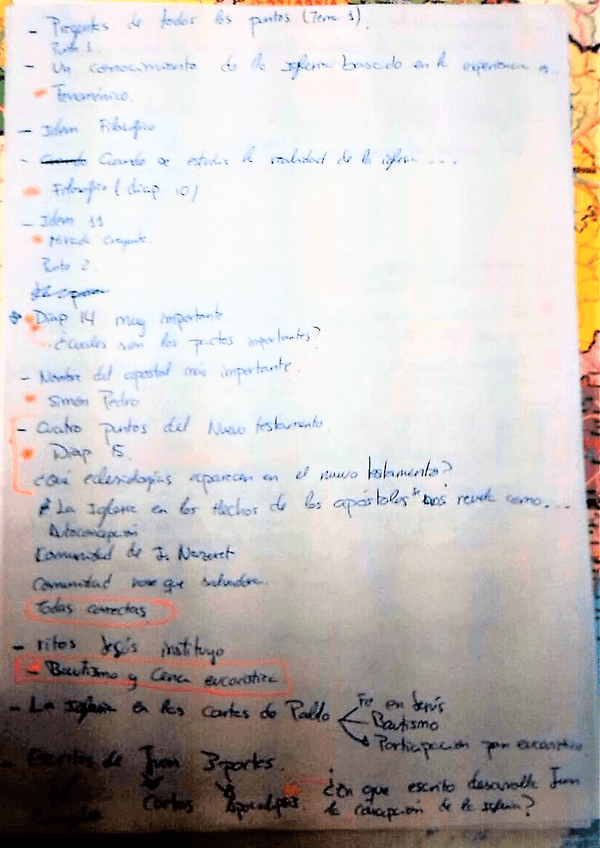 - Preguntas de todos los puntos (Tema 1).
Punto 1
- Un conocimiento de la Iglesia basado en la experiencia es...
Fenoménico.
- Idem Filosófico
- Cuando se estudia la realidad de la iglesia ...
Filosófico (diap 10)
- Idem 11
Mirada Creyente.
Punto 2.
Diap 14 muy importante
¿Cuales son los pactos importantes?
- Nombre del apostol más importante.
Simón Pedro
- Cuatro puntos del Nuevo testamento
Diap 15.
¿Qué eclesiologías aparecen en el nuevo testamento?
"La Iglesia en los Hechos de los apóstoles" nos revela como...
Autoconcepción
Comunidad de J. Nazaret
Comunidad que salvadora.
Todas correctas
- ritos Jesús instituyo
- Bautismo y Cena eucarística
- La Iglesia en las cartas de Pablo
Fe en Jesús
Bautismo
Participación pan eucarístico
- Escritos de Juan 3 partes.
Cartas Apocalipsis
¿En que escrito desarrolla Juan
la concepción de la iglesia?